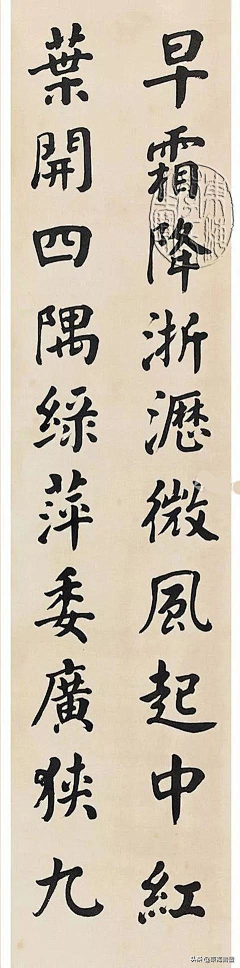 早霜降淅瀝微風起中紅
葉開四隅綠萍委廣狹九